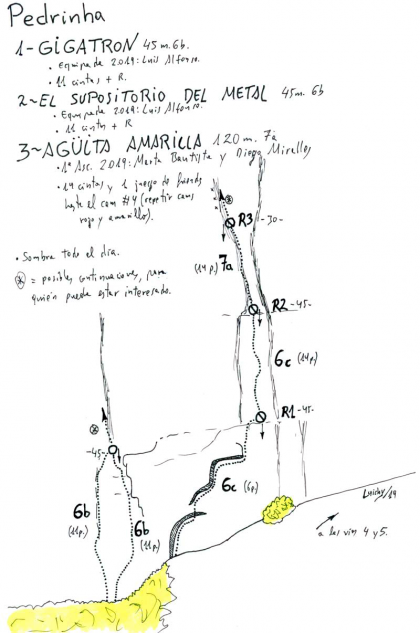 Pedrinha
1-GIGATRON 45 m. 6b.
• Equipada 2019: Luis Alfonso.
• 11 cintas + R.
2~EL SUPOSITORIO DEL METAL 45m. 6b
• Equipada 2019: Luis Alfonso.
• 11 cintas + R
3~AGÜITA AMARILLA 120 m. 7a
• 1ª Asc. 2019: Marta Bautista y Diego Miralles
• 14 cintas y 1 juego de friends
hasta el cam #4 (repetir cams
rojo y amarillo).
• Sombra todo el día.
⊛ = posibles continuaciones, para
quien pueda estar interesado.
R3 -30-
7a
(14 p.)
R2 -45-
6c
(14p.)
R1 -45-
-45-
6c (6p.)
6b
(11p.)
6b
(11p.)
a las vías 4 y 5.